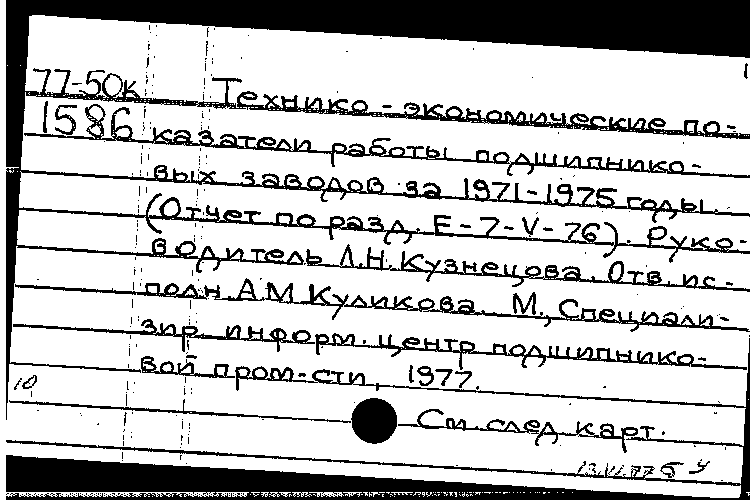 1
77-50к Технико-экономические по-
1586 казатели работы подшипнико-
вых заводов за 1971-1975 годы.
(Отчет по разд. Е-7-V-76). Руко-
водитель Л.Н. Кузнецова. Отв. ис-
полн. А.М Куликова. М., Специали-
зир. информ. центр подшипнико-
вой пром-сти, 1977.
10
См. след карт.
13.VI.77 Б